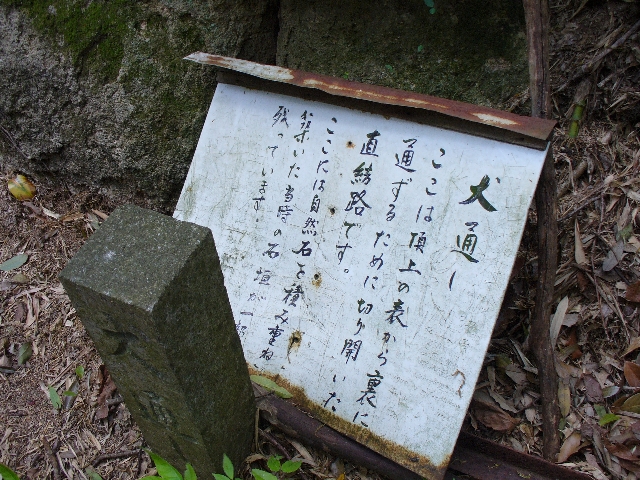 犬通し
ここは頂上の表から裏に
通ずるために切り開いた
直結路です。
ここには自然石を積み重ね
築いた当時の石垣が一部
残っています